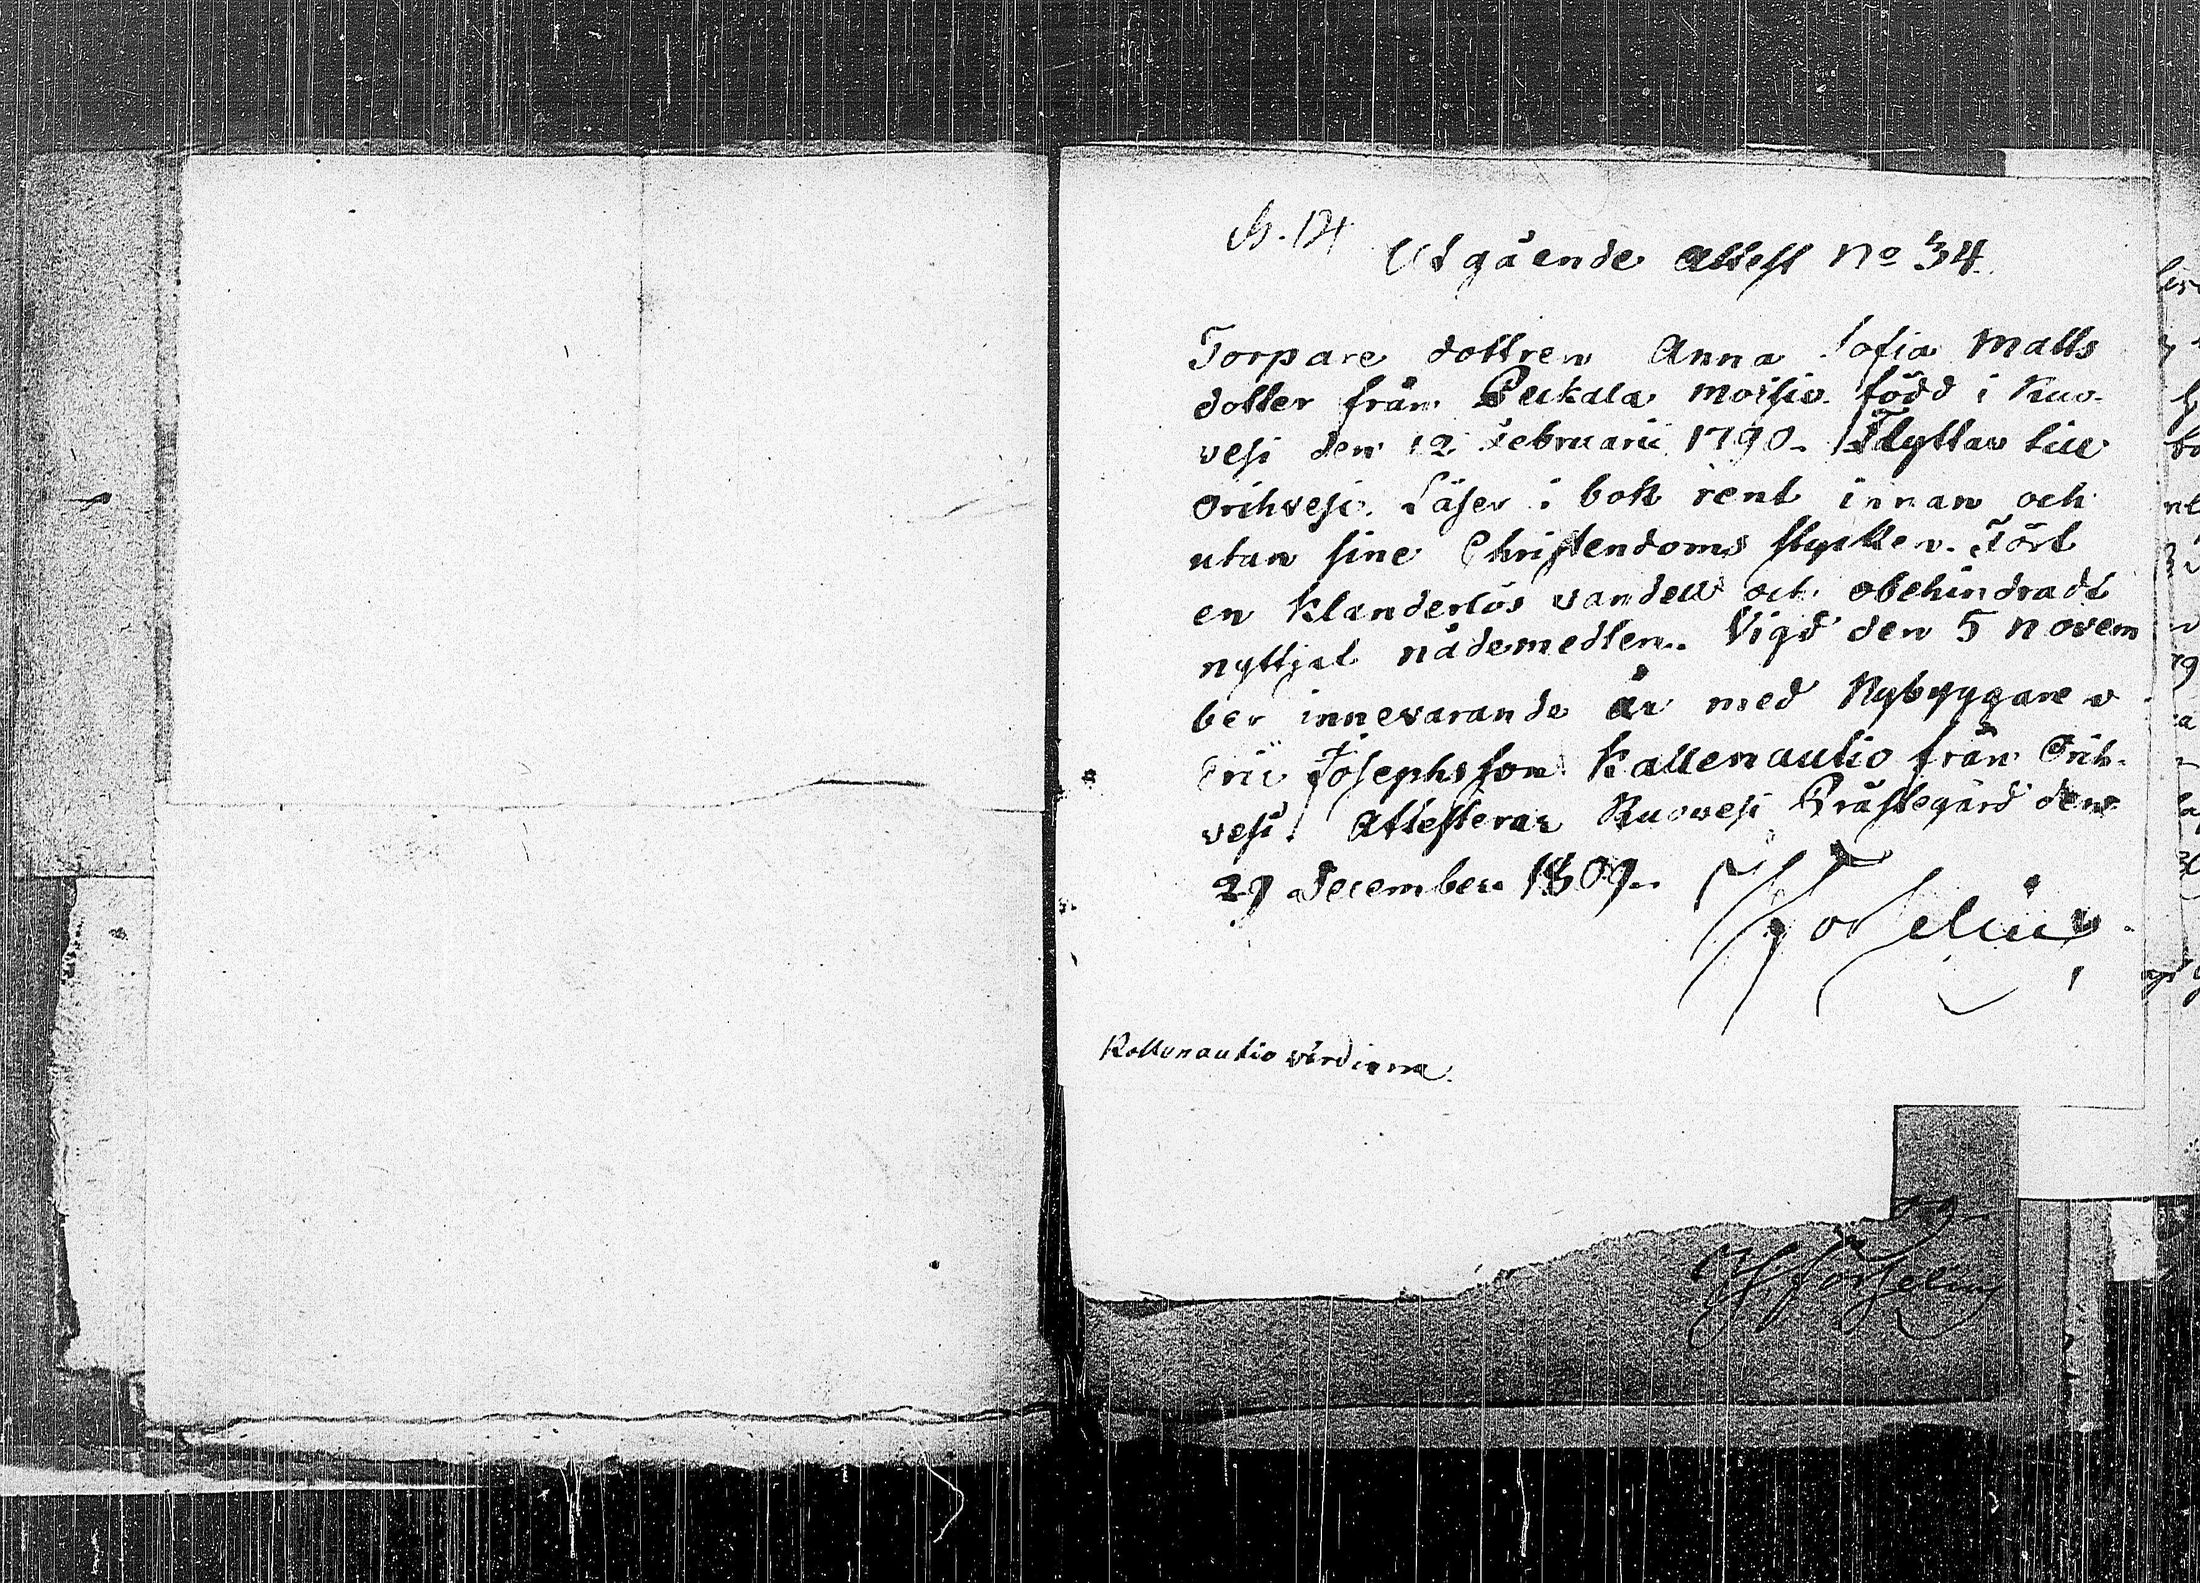 Utgående Attest No 34
Torpare dottren Anna Sofia Matts
dotter från Pekkala Moisio född i Ruo-
vesi den 12 Februarii 1790. Flyttar till
Orihvesi. Läser i bok rent innan och
utan sine Christendoms stycken. Fört
en klanderlös vandell och obehindradt
nyttjat nådemedlen. Vigd den 5 Novem
ber innevarande år med Nybyggaren
Eric Josephsson Kallenautio från Orih-
vesi. Attesterar Ruovesi Prästegård den
29 December 1809.
Forselius
Kallenautio värdinna.
Forselius